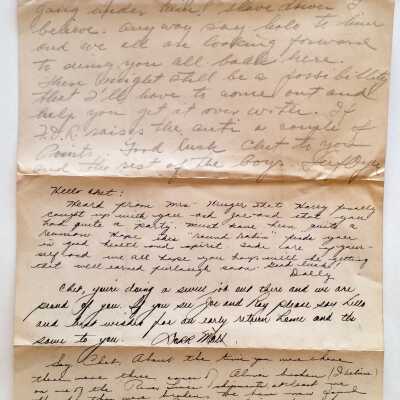 gang under him! slave driver I
believe. Anyway say hello to him
and we all are looking forward
to seeing you all back here.
There might still be a possibility
that I'll have to come out and
help you get it over with. If
F.D.R. raises the anti a couple of
Points. Good luck Chet to you
and the rest of the boys.
Hello Chet:
Heard from Mrs. that Harry finally
caught up with you and Joe and that you
had quite a party. Must have been quite a
reunion. Hope this "round robin" finds you
in good health and spirit. Take care of your-
self and we all hope you boys will be getting
that well earned furlough soon. Good luck!
Dolly
Chet, you're doing a swell job out there and we are
proud of you. If you see Joe and Ray please say hello
and best wishes for an early return home and the
same to you.
Say Chet, About the time you were
there were three cases of broken
one of the shipments, at least we
they were broken. We have now